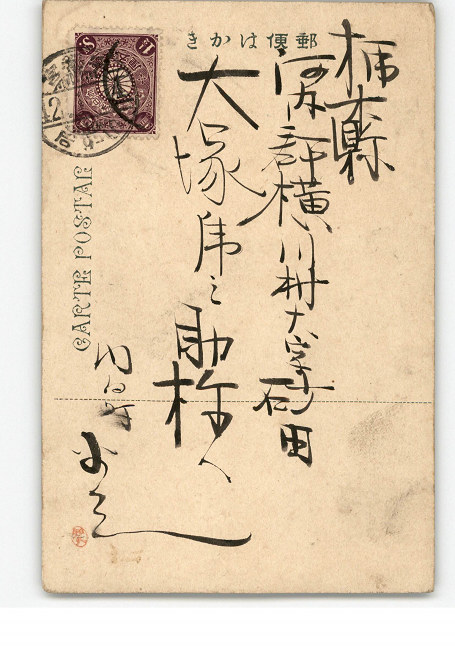 郵便はかき
栃木縣
河内郡横川村大字砂田
大塚乕之助様へ
CARTE POSTALE